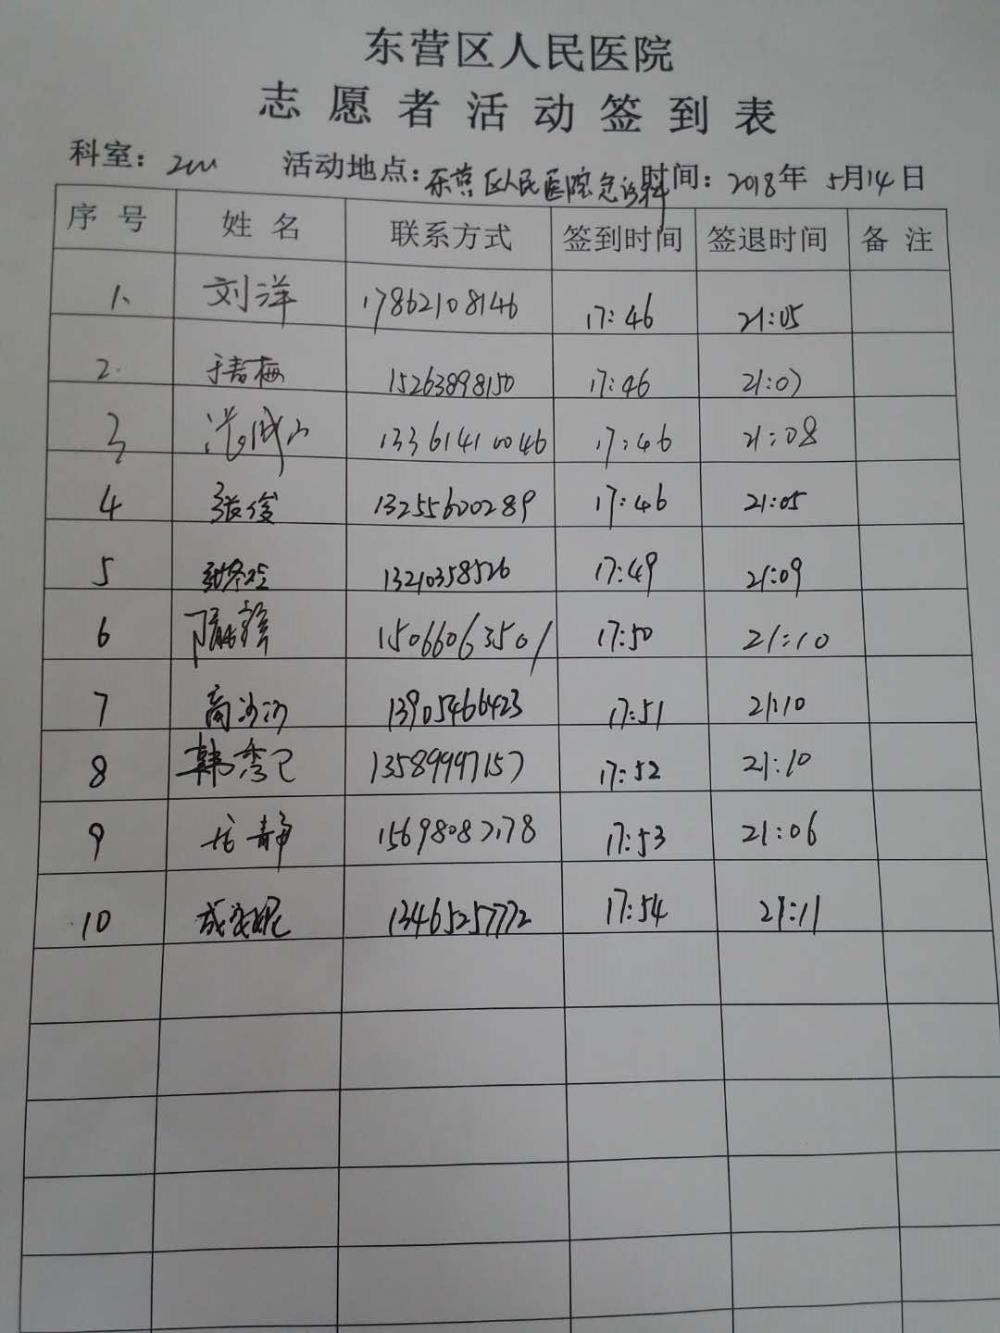 东营区人民医院
志愿者活动签到表
科室: 活动地点:东营区人民医院急诊科 时间:2018年 5月14日
序号 姓名 联系方式 签到时间 签退时间 备注
1、 刘洋 17862108146 17:46 21:05
2. 15263898150 17:46 21:07
3 13361410046 17:46 21:08
4 张俊 13255600289 17:46 21:05
5 13210358526 17:49 21:09
6 15066063501 17:50 21:10
7 13905466423 17:51 21:10
8 13589997157 17:52 21:10
9 15698082178 17:53 21:06
10 13465257772 17:54 21:11